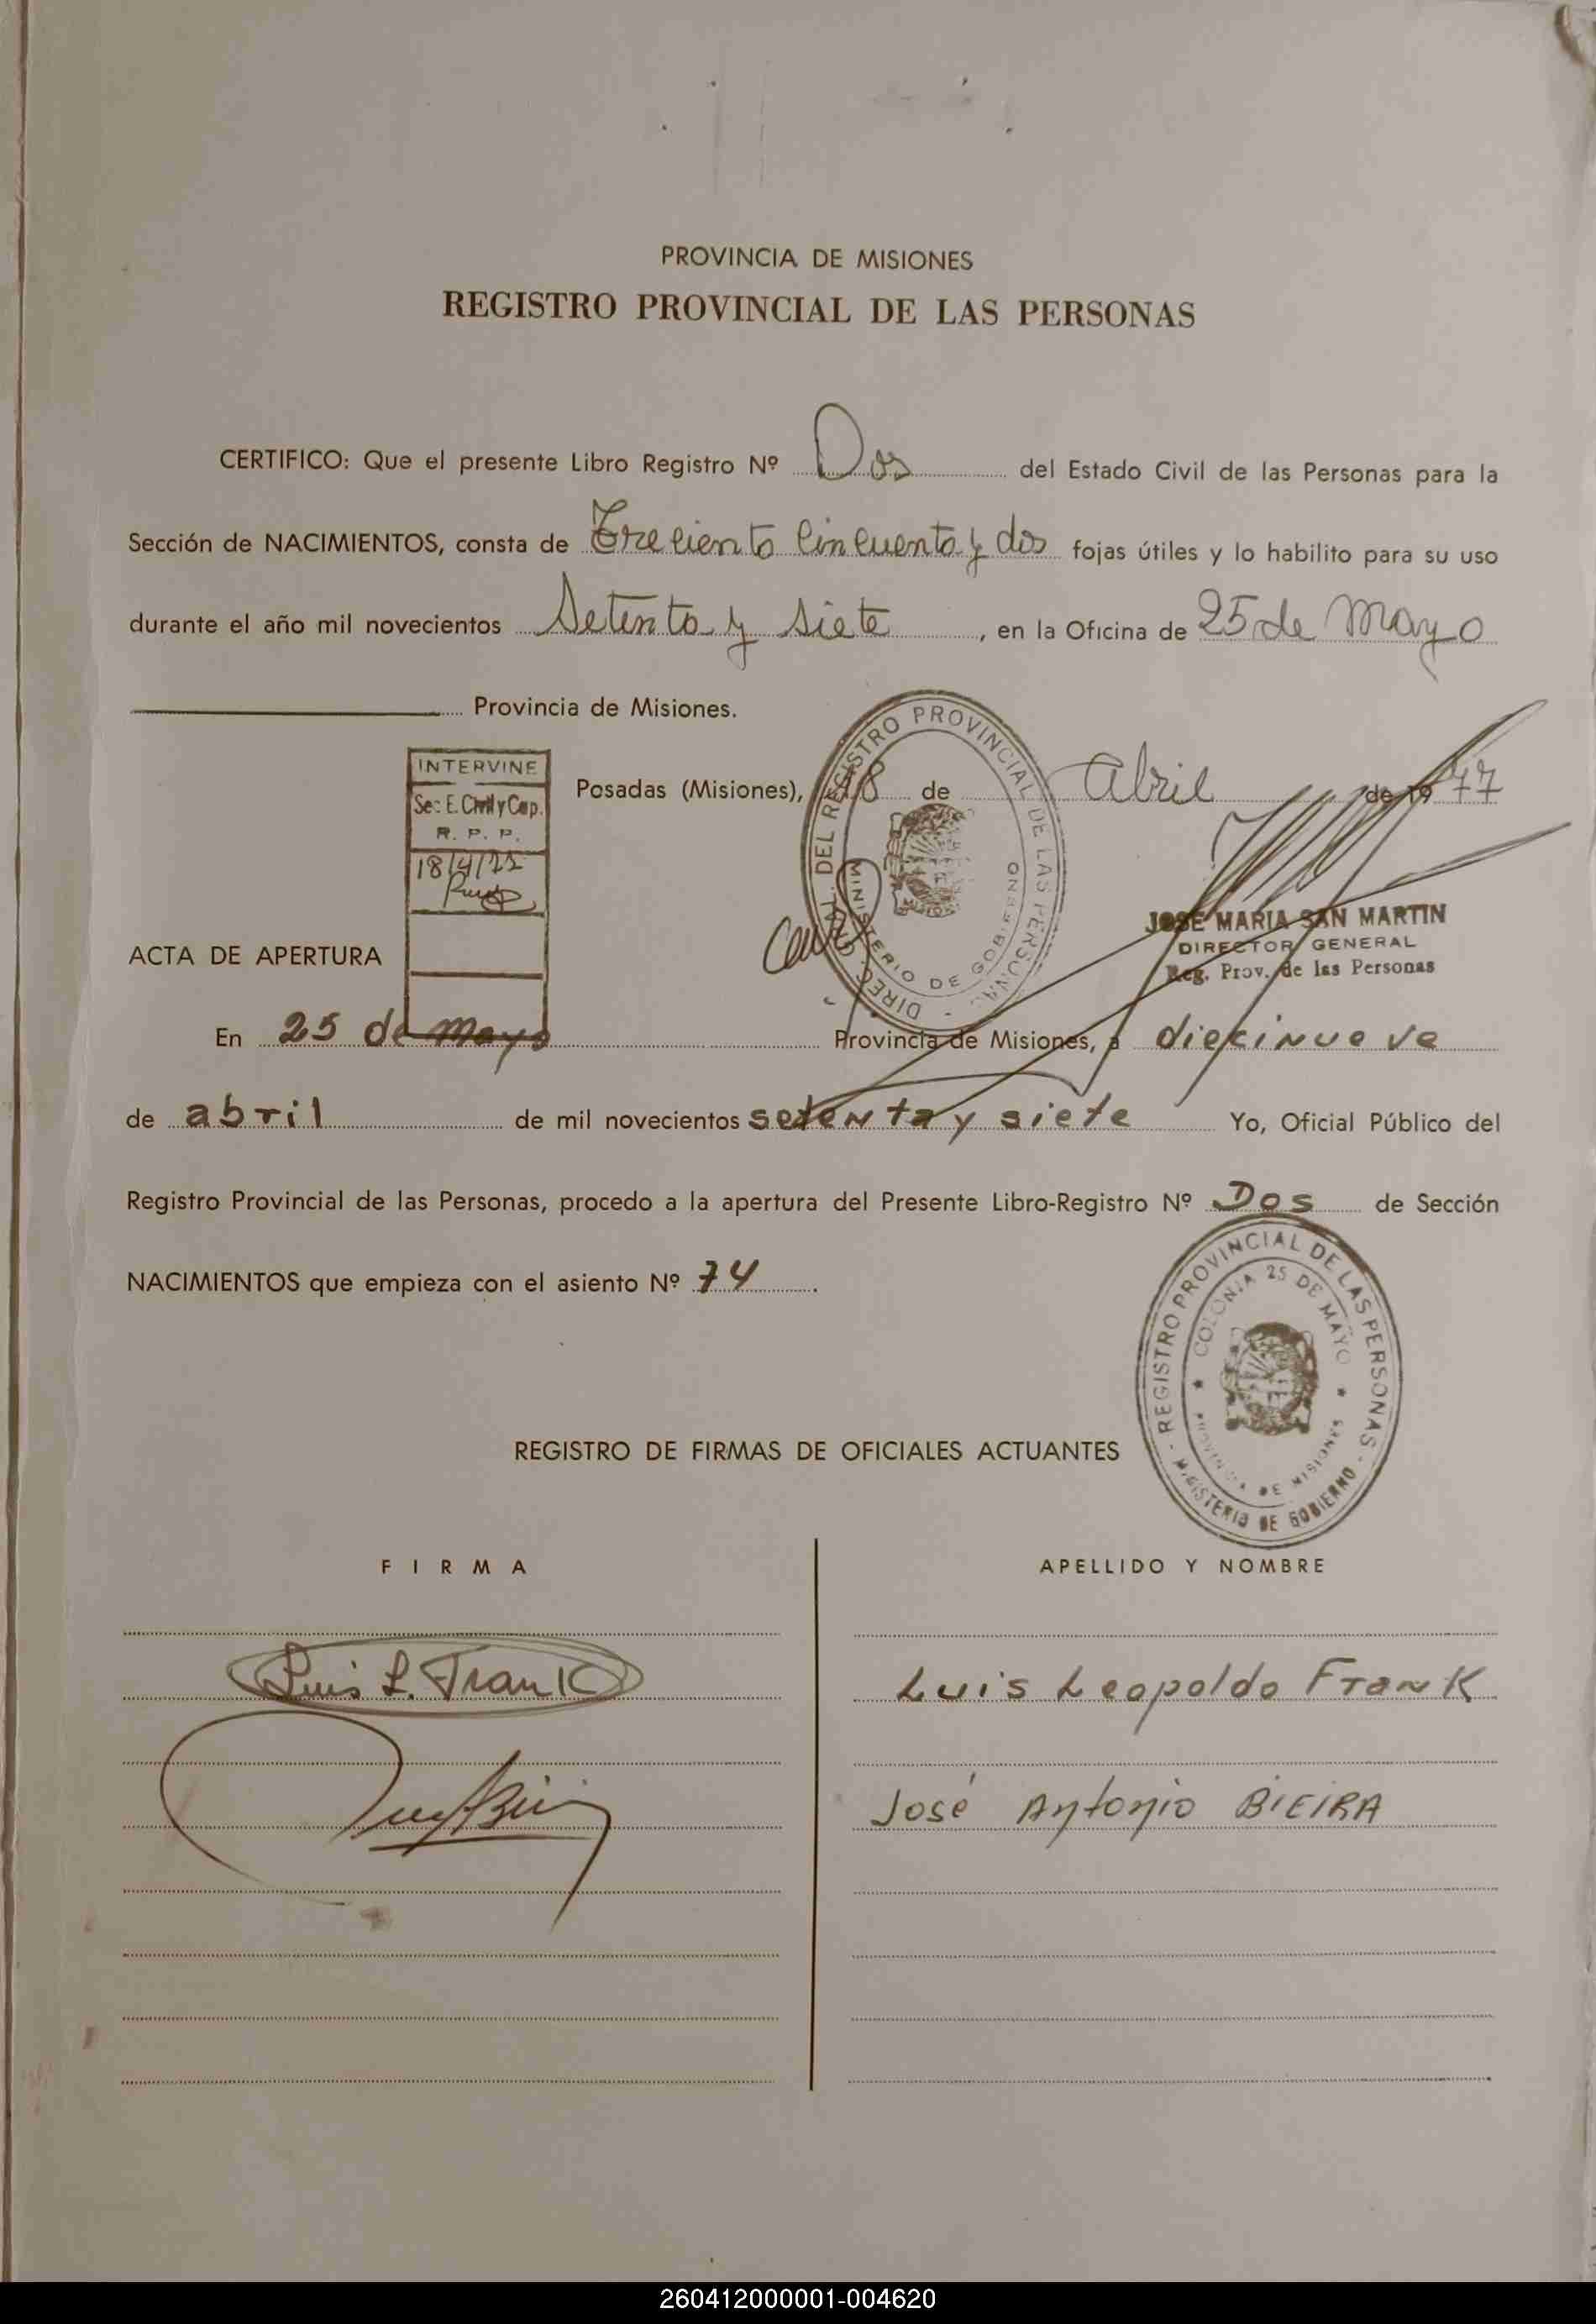 PROVINCIA DE MISIONES
REGISTRO PROVINCIAL DE LAS PERSONAS
CERTIFICO: Que el presente Libro Registro Nº Dos del Estado Civil de las Personas para la
Sección de NACIMIENTOS, consta de Treciento Cincuenta y dos fojas útiles y lo habilito para su uso
durante el año mil novecientos Setenta y siete, en la Oficina de 25 de Mayo
Provincia de Misiones.
INTERVINE
Sec. E. Civil y Cap.
R. P. P.
Posadas (Misiones), 18 de Abril de 1977
DIREC. GRAL. DEL REGISTRO PROVINCIAL DE LAS PERSONAS
MINISTERIO DE GOBIERNO
JOSE MARIA SAN MARTIN
DIRECTOR GENERAL
Reg. Prov. de las Personas
ACTA DE APERTURA
En 25 de Mayo Provincia de Misiones, a diecinueve
de abril de mil novecientos setenta y siete Yo, Oficial Público del
Registro Provincial de las Personas, procedo a la apertura del Presente Libro-Registro Nº Dos de Sección
NACIMIENTOS que empieza con el asiento Nº 74.
REGISTRO PROVINCIAL DE LAS PERSONAS
MINISTERIO DE GOBIERNO
COLONIA 25 DE MAYO
PROVINCIA DE MISIONES
REGISTRO DE FIRMAS DE OFICIALES ACTUANTES
FIRMA APELLIDO Y NOMBRE
Luis L. Frank Luis Leopoldo Frank
José Antonio BIEIRA
260412000001-004620